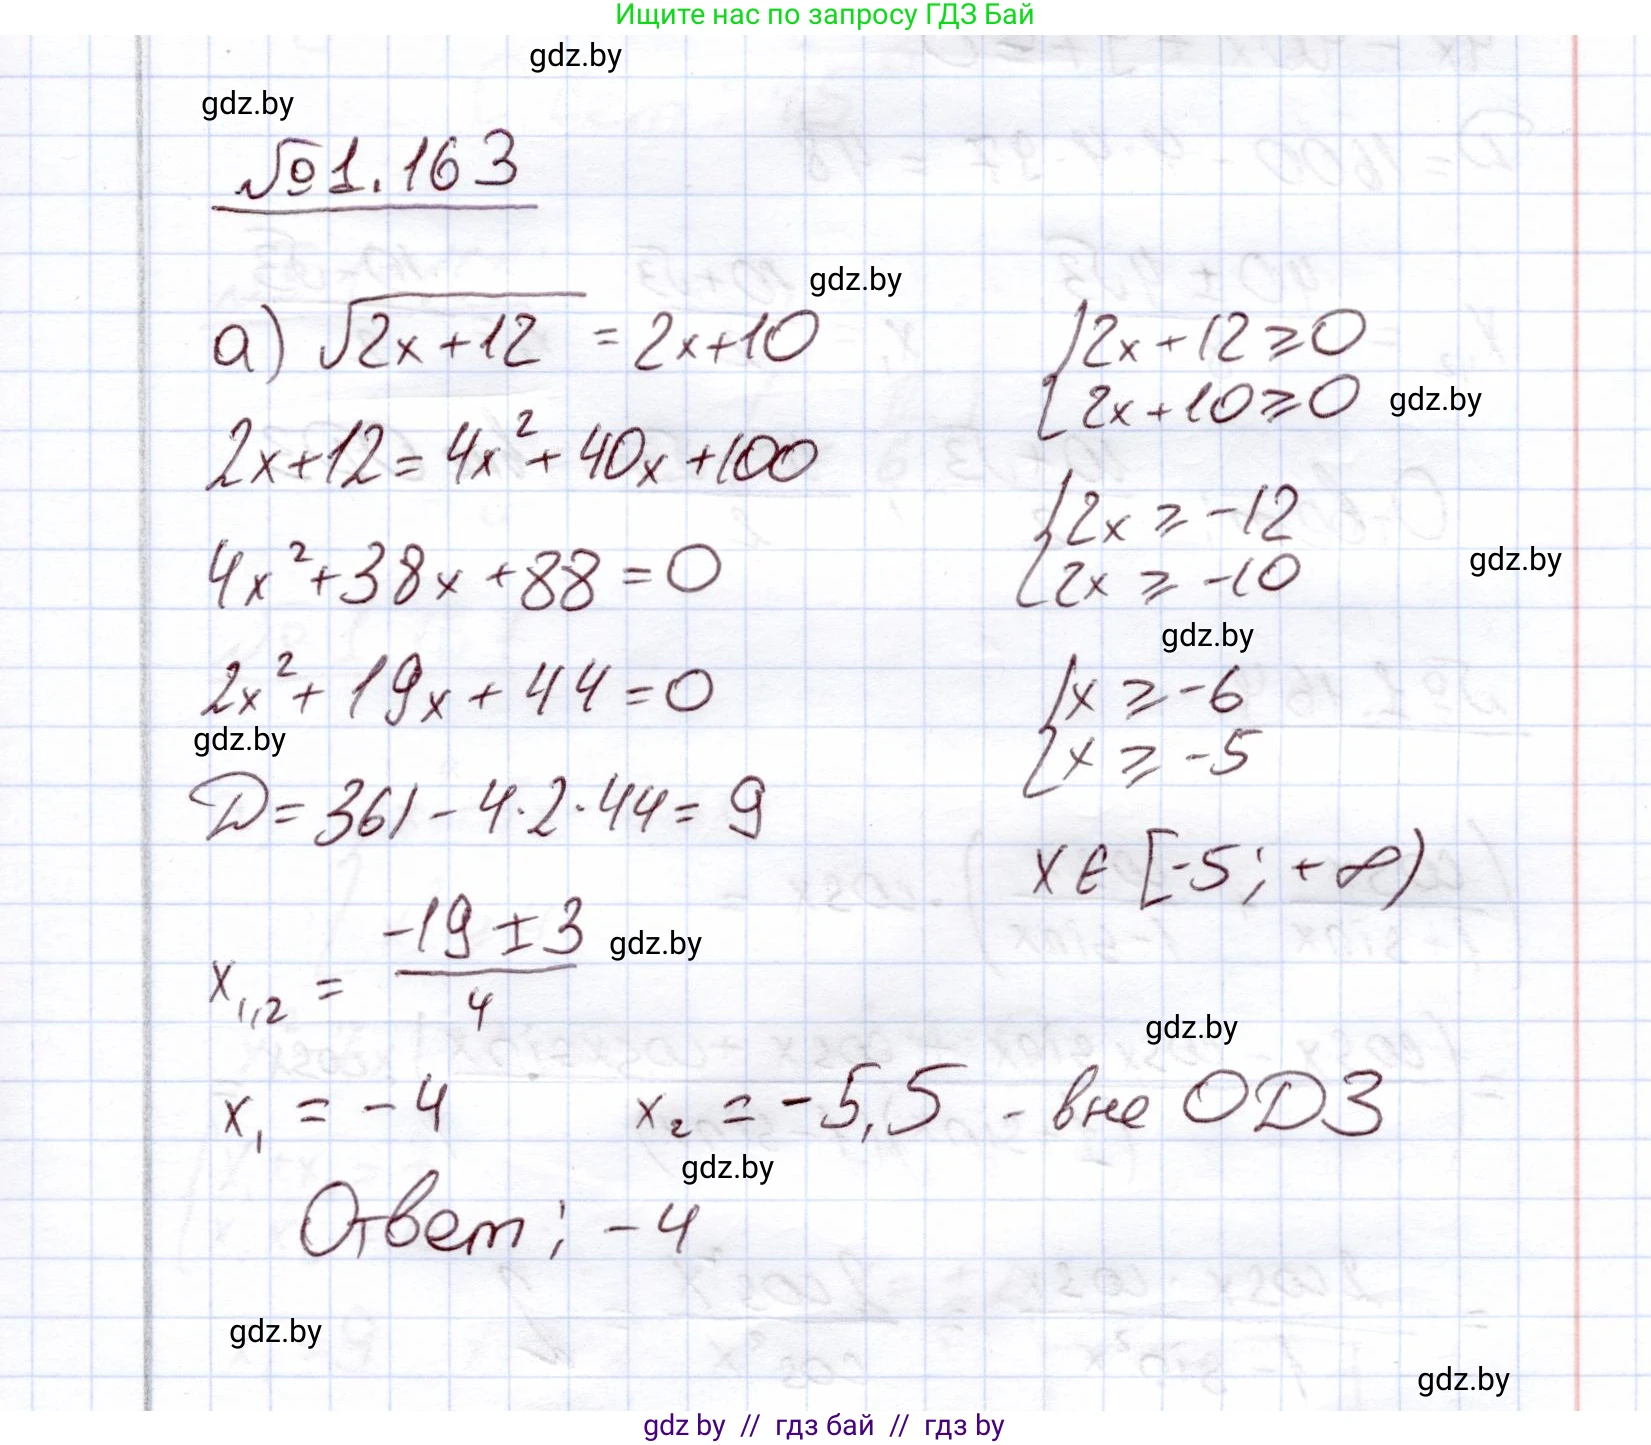 Ищите нас по запросу ГДЗ Бай
gdz.by
gdz.by
№1.163
gdz.by
а) √(2x+12) = 2x+10
{2x+12≥0
{2x+10≥0
gdz.by
2x+12=4x²+40x+100
{2x≥-12
{2x≥-10
gdz.by
4x²+38x+88=0
gdz.by
2x²+19x+44=0
{x≥-6
{x≥-5
gdz.by
D=361-4·2·44=9
x∈[-5;+∞)
x₁,₂ = (-19±3)/4
gdz.by
gdz.by
x₁ = -4 x₂ = -5,5 - вне ОДЗ
gdz.by
Ответ: -4
gdz.by
gdz.by
gdz by // гдз бай // гдз by